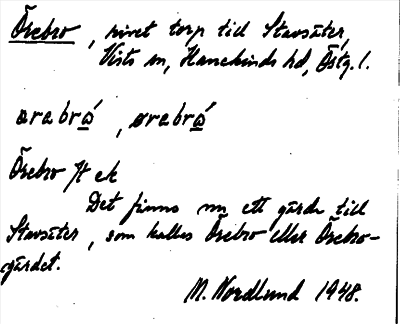 Örebro, rivet torp till Stavsäter,
Vists sn, Hanekinds hd, Östg.l.
ørabró, ørabró
Örebro ft ek
Det finns nu ett gärde till
Stavsäter, som kallas Örebro eller Örebro-
gärdet.
M. Nordlund 1948.